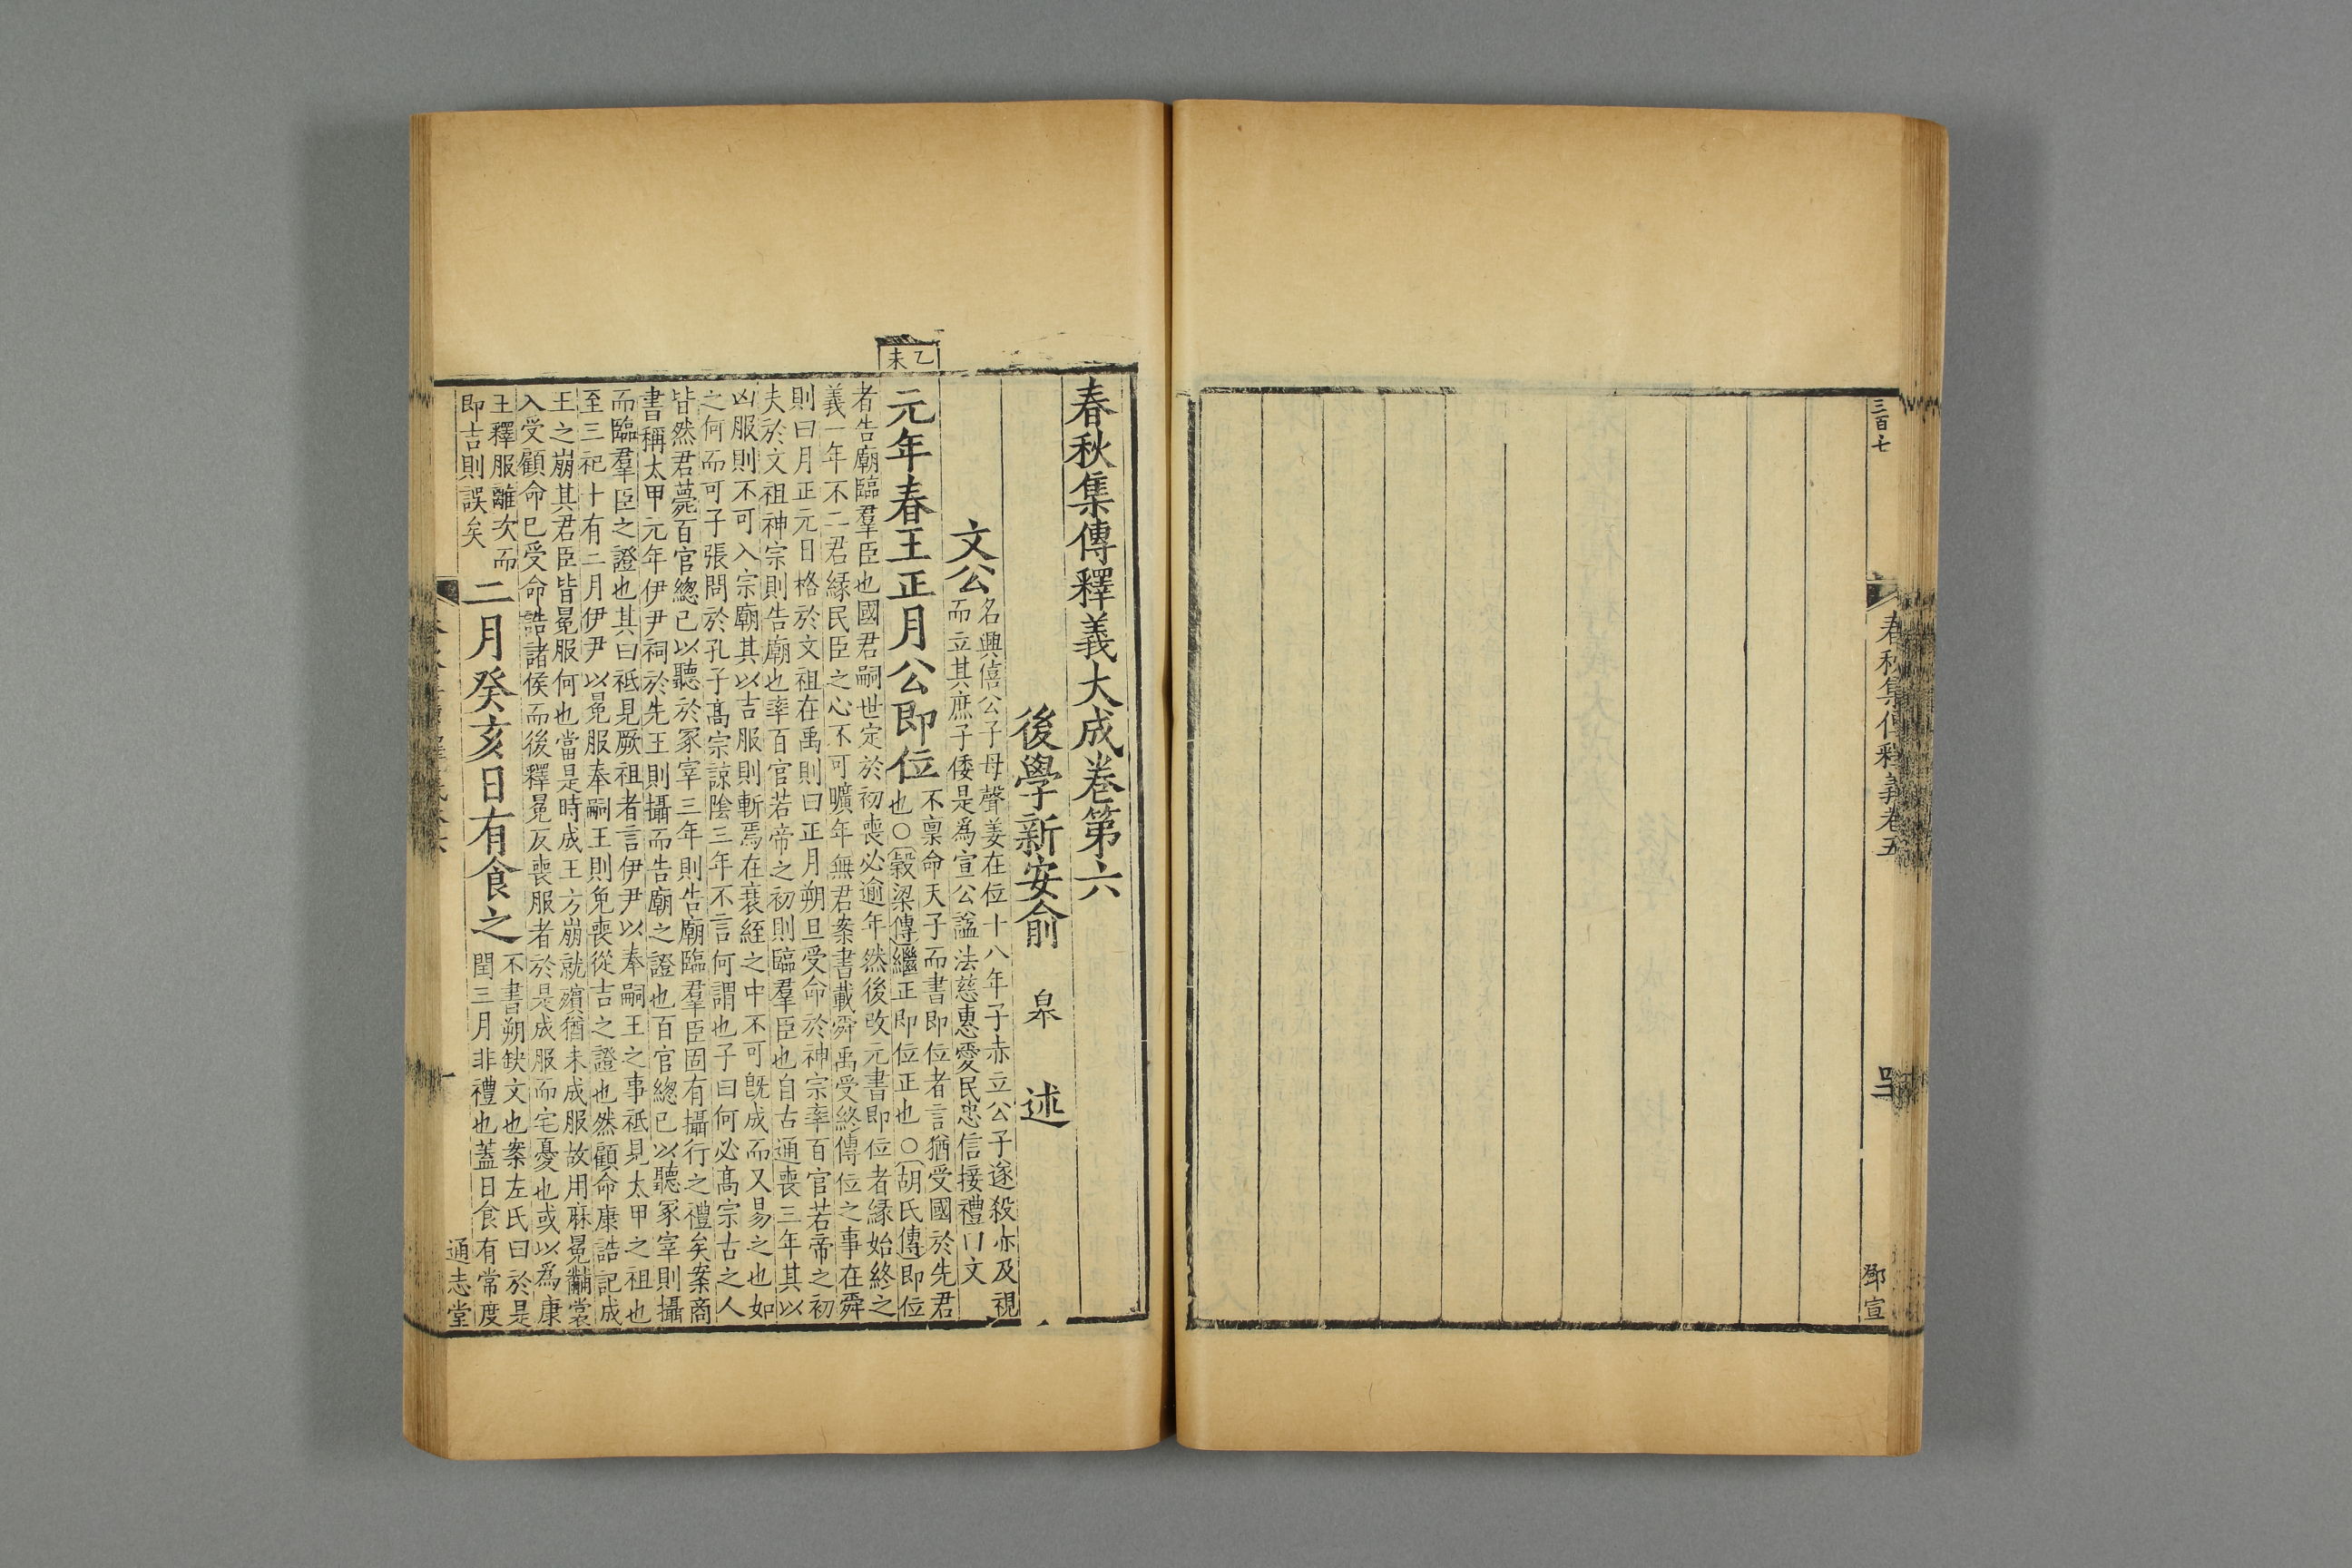 三百七
春秋集傳釋義卷五
鄧宣
春秋集傳釋義大成卷第六
後學新安俞 皐 述
文公
名興僖公子母聲姜在位十八年子赤立公子遂殺赤及視
而立其庶子倭是爲宣公諡法慈惠愛民忠信接禮曰文
乙未
元年春王正月公即位
不稟命天子而書即位者言猶受國於先君
也○穀梁傳繼正即位正也○胡氏傳即位
者告廟臨羣臣也國君嗣世定於初喪必逾年然後改元書即位者緣始終之
義一年不二君緣民臣之心不可曠年無君案書載舜禹受終傳位之事在舜
則曰月正元日格於文祖在禹則曰正月朔旦受命於神宗率百官若帝之初
夫於文祖神宗則告廟也率百官若帝之初則臨羣臣也自古通喪三年其以
凶服則不可入宗廟其以吉服則斬焉在衰絰之中不可旣成而又易之也如
之何而可子張問於孔子髙宗諒陰三年不言何謂也子曰何必髙宗古之人
皆然君薨百官總己以聽於冢宰三年則告廟臨羣臣固有攝行之禮矣案商
書稱太甲元年伊尹祠於先王則攝而告廟之證也百官總已以聽冢宰則攝
而臨羣臣之證也其曰祗見厥祖者言伊尹以奉嗣王之事祗見太甲之祖也
至三祀十有二月伊尹以冕服奉嗣王則免喪從吉之證也然顧命康誥記成
王之崩其君臣皆冕服何也當是時成王方崩就殯猶未成服故用麻冕黼裳
入受顧命已受命誥諸侯而後釋冕反喪服者於是成服而宅憂也或以爲康
王釋服離次而
即吉則誤矣
二月癸亥日有食之
不書朔缺文也案左氏曰於是
閏三月非禮也蓋日食有常度
通志堂